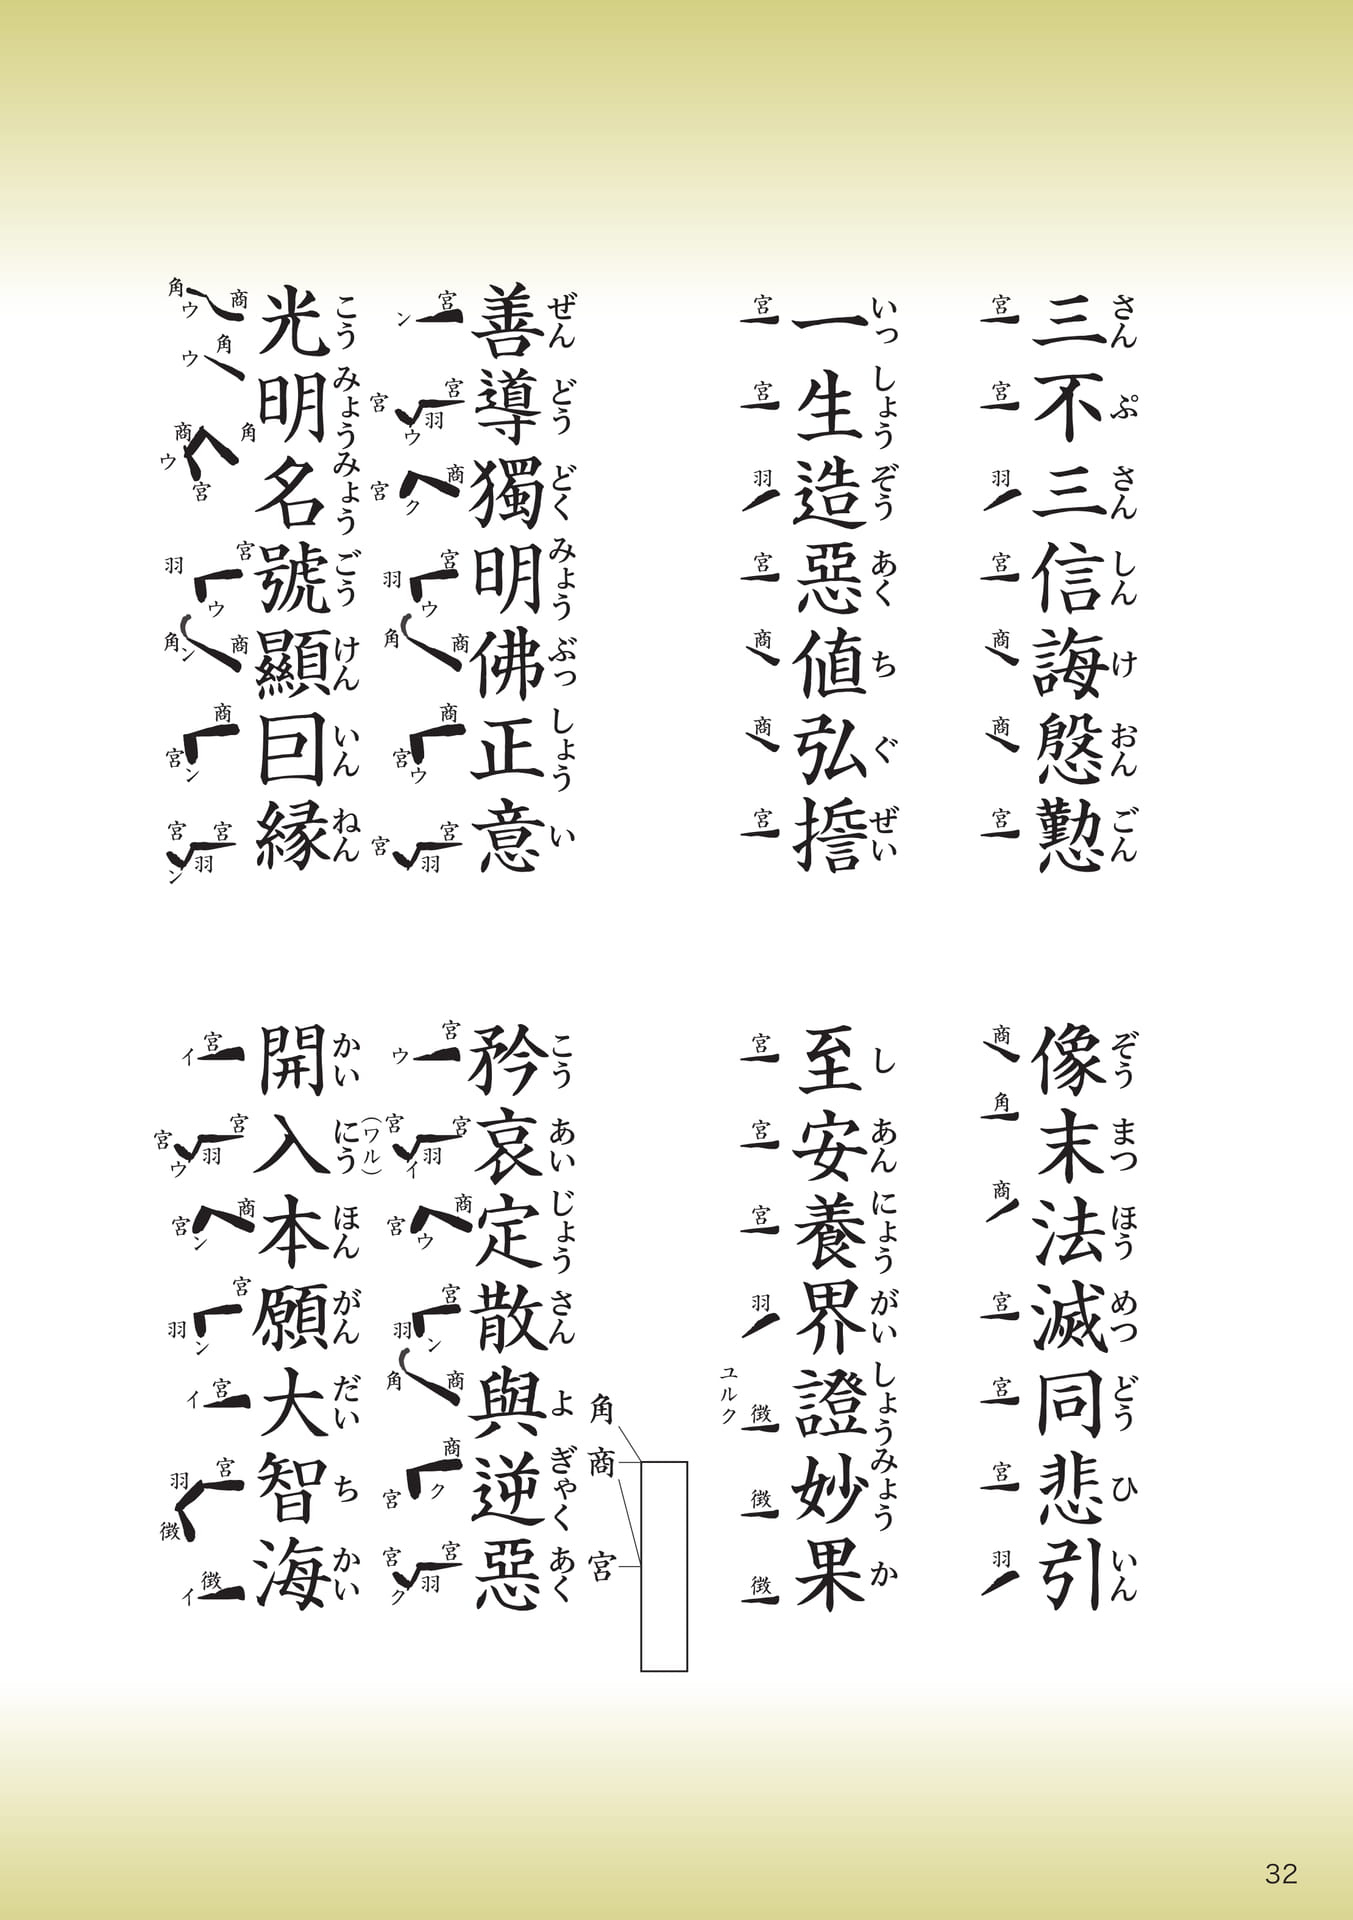 さん ぷ さん しん け おん ごん
三不三信誨慇懃
宮 宮 羽 宮 商 商 宮
ぞう まつ ほう めつ どう ひ いん
像末法滅同悲引
商 角 商 宮 宮 宮 羽
いっ しょう ぞう あく ち ぐ ぜい
一生造惡値弘誓
宮 宮 羽 宮 商 商 宮
し あん にょう がい しょう みょう か
至安養界證妙果
宮 宮 宮 羽 徴 徴 徴
ユルク
角 商 宮
ぜん どう どく みょう ぶっ しょう い
善導獨明佛正意
宮ン 宮羽宮ウ 商宮ク 宮羽ウ 商角 商宮ウ 宮羽宮
こう あい じょう さん よ ぎゃく あく
矜哀定散與逆惡
宮ウ 宮羽宮イ 商宮ウ 宮羽ン 商角 商宮ク 宮羽宮ク
こう みょう みょう ごう けん いん ねん
光明名號顯囙縁
商角ウ 角ウ 角商宮ウ 宮羽ウ 商角ン 商宮ン 宮羽宮ン
かい にう(ワル) ほん がん だい ち かい
開入本願大智海
宮イ 宮羽宮ウ 商宮ン 宮羽ン 宮イ 宮羽徴 徴イ
32